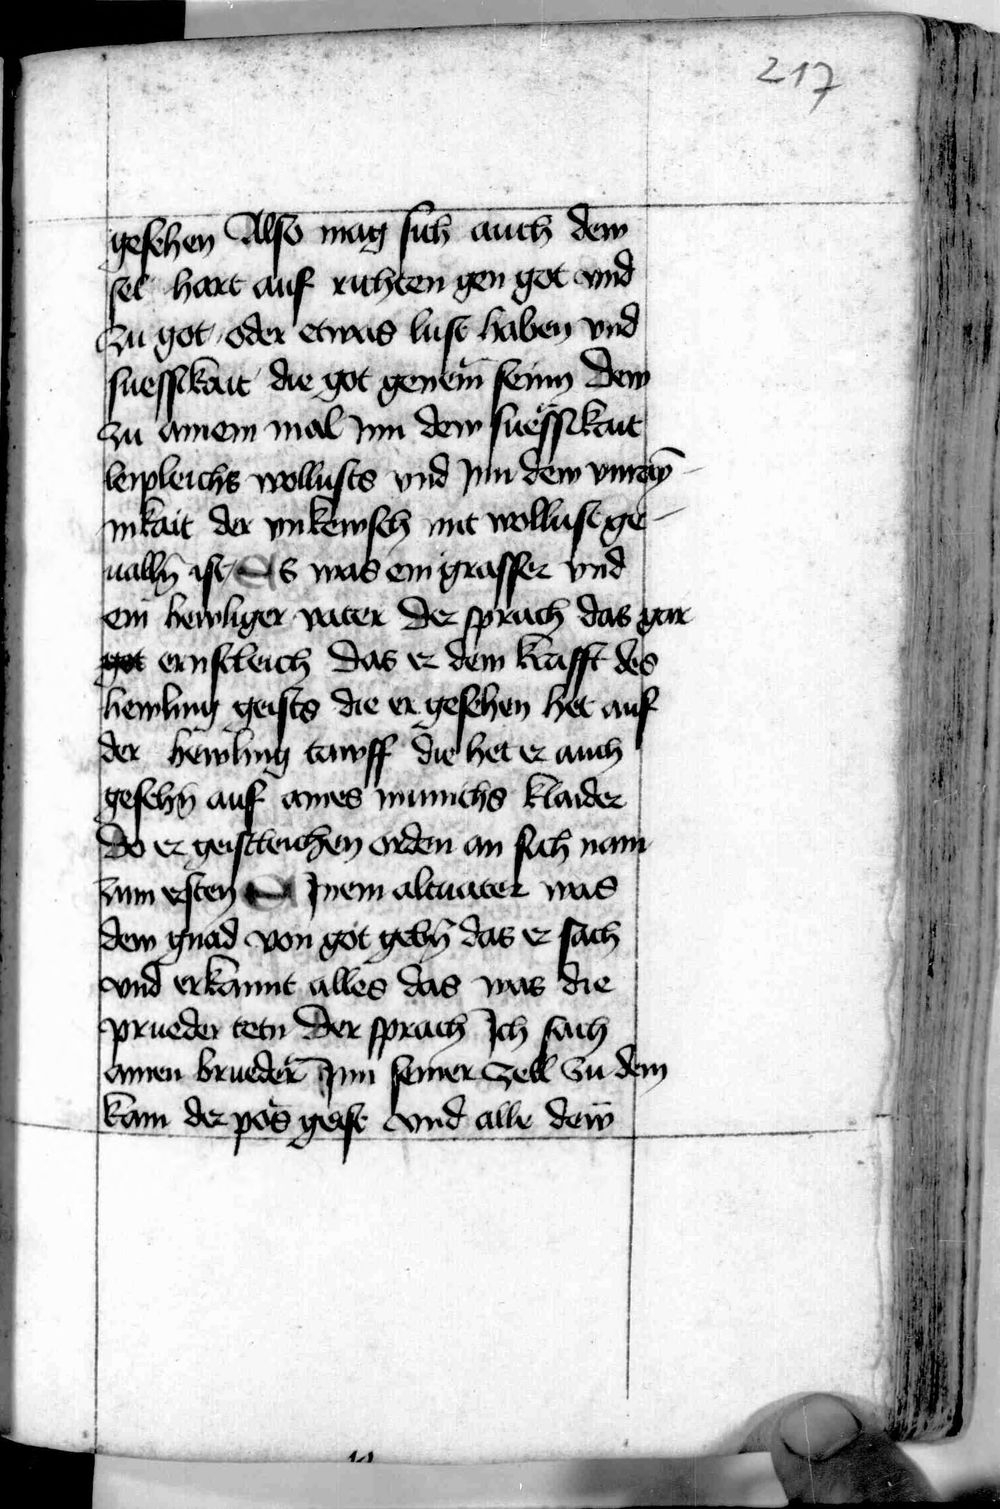 217
gesehen Also mag sich auch dew
sel hart auf richten gen got vnd
zu got oder etwas lust haben vnd
suessikait die got genem seinn Dew
zu ainem mal jnn dew suessikait
leipleichs wollusts vnd jnn dew vnray̅
nikait der vnkewsch mit wollust ge
uall̅n ist Es was ein grasser vnd
ein hewliger vater Der sprach das gar
ernstleich Das er dew krafft des
hewling geists die er gesehen het auf
der hewling tawff die het er auch
geseh̅n auf aines munichs klaider
Do er geistleichen orden an sich nam
zum ersten Ainem altuater was
dew gnad von got geb̅n das er sach
vnd erkannt alles das was die
prueder tetn Der sprach Ich sach
ainen brueder Jnn seiner zell zu dem
kam der pös geist vnd alle dew